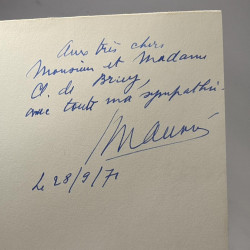 Aux très chers
Monsieur et Madame
Cl. de Briey,
avec toute ma sympathie.
Le 28/9/71